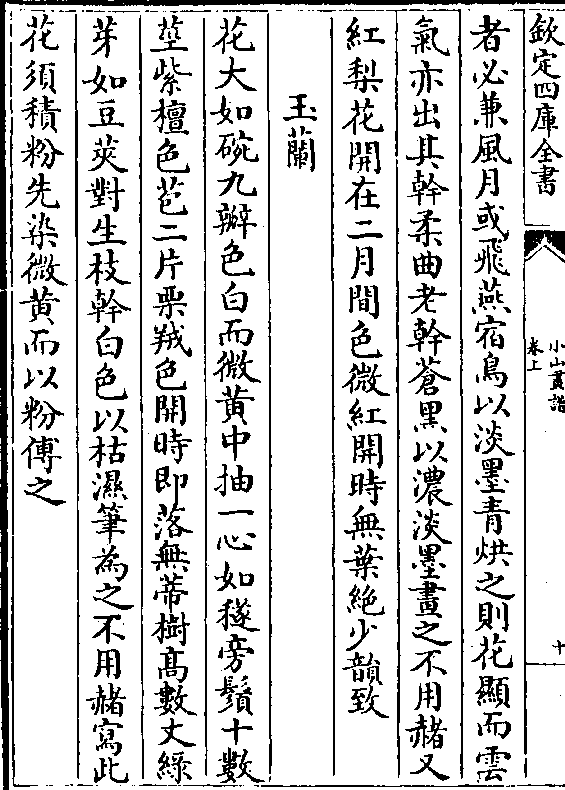 欽定四庫全書
小山畫譜
卷上
十
者必兼風月或飛燕宿鳥以淡墨青烘之則花顯而雲
氣亦出其幹柔曲老幹蒼黑以濃淡墨畫之不用赭又
紅梨花開在二月間色微紅開時無葉絶少韻致
玉蘭
花大如碗九瓣色白而微黄中抽一心如穟旁鬚十數
莖紫檀色苞二片栗羢色開時即落無蒂樹髙數丈綠
芽如豆莢對生枝幹白色以枯濕筆為之不用赭寫此
花須積粉先染微黄而以粉傅之